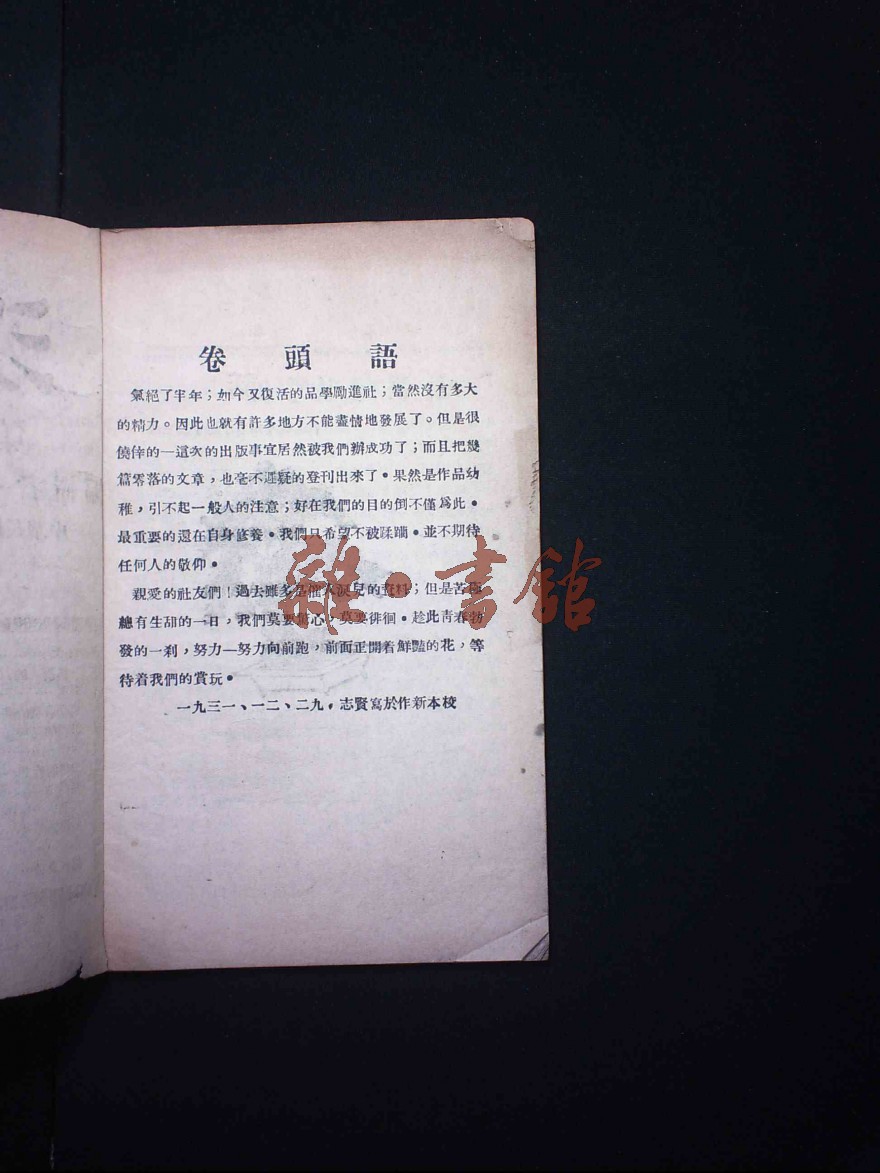 卷頭語
氣絕了半年；如今又復活的品學勵進社；當然沒有多大
的精力。因此也就有許多地方不能盡情地發展了。但是很
僥倖的—這次的出版事宜居然被我們辦成功了；而且把幾
篇零落的文章，也毫不遲疑的登刊出來了。果然是作品幼
稚，引不起一般人的注意；好在我們的目的倒不僅爲此。
最重要的還在自身修養。我們只希望不被蹂躪。並不期待
任何人的敬仰。
親愛的社友們！過去雖多是催人淚兒的資料；但是苦極
總有生甜的一日，我們莫要灰心，莫要徘徊。趁此靑春勃
發的一刹，努力—努力向前跑，前面正開着鮮豔的花，等
待着我們的賞玩。
一九三一、一二、二九，志賢寫於作新本校
雜·書館